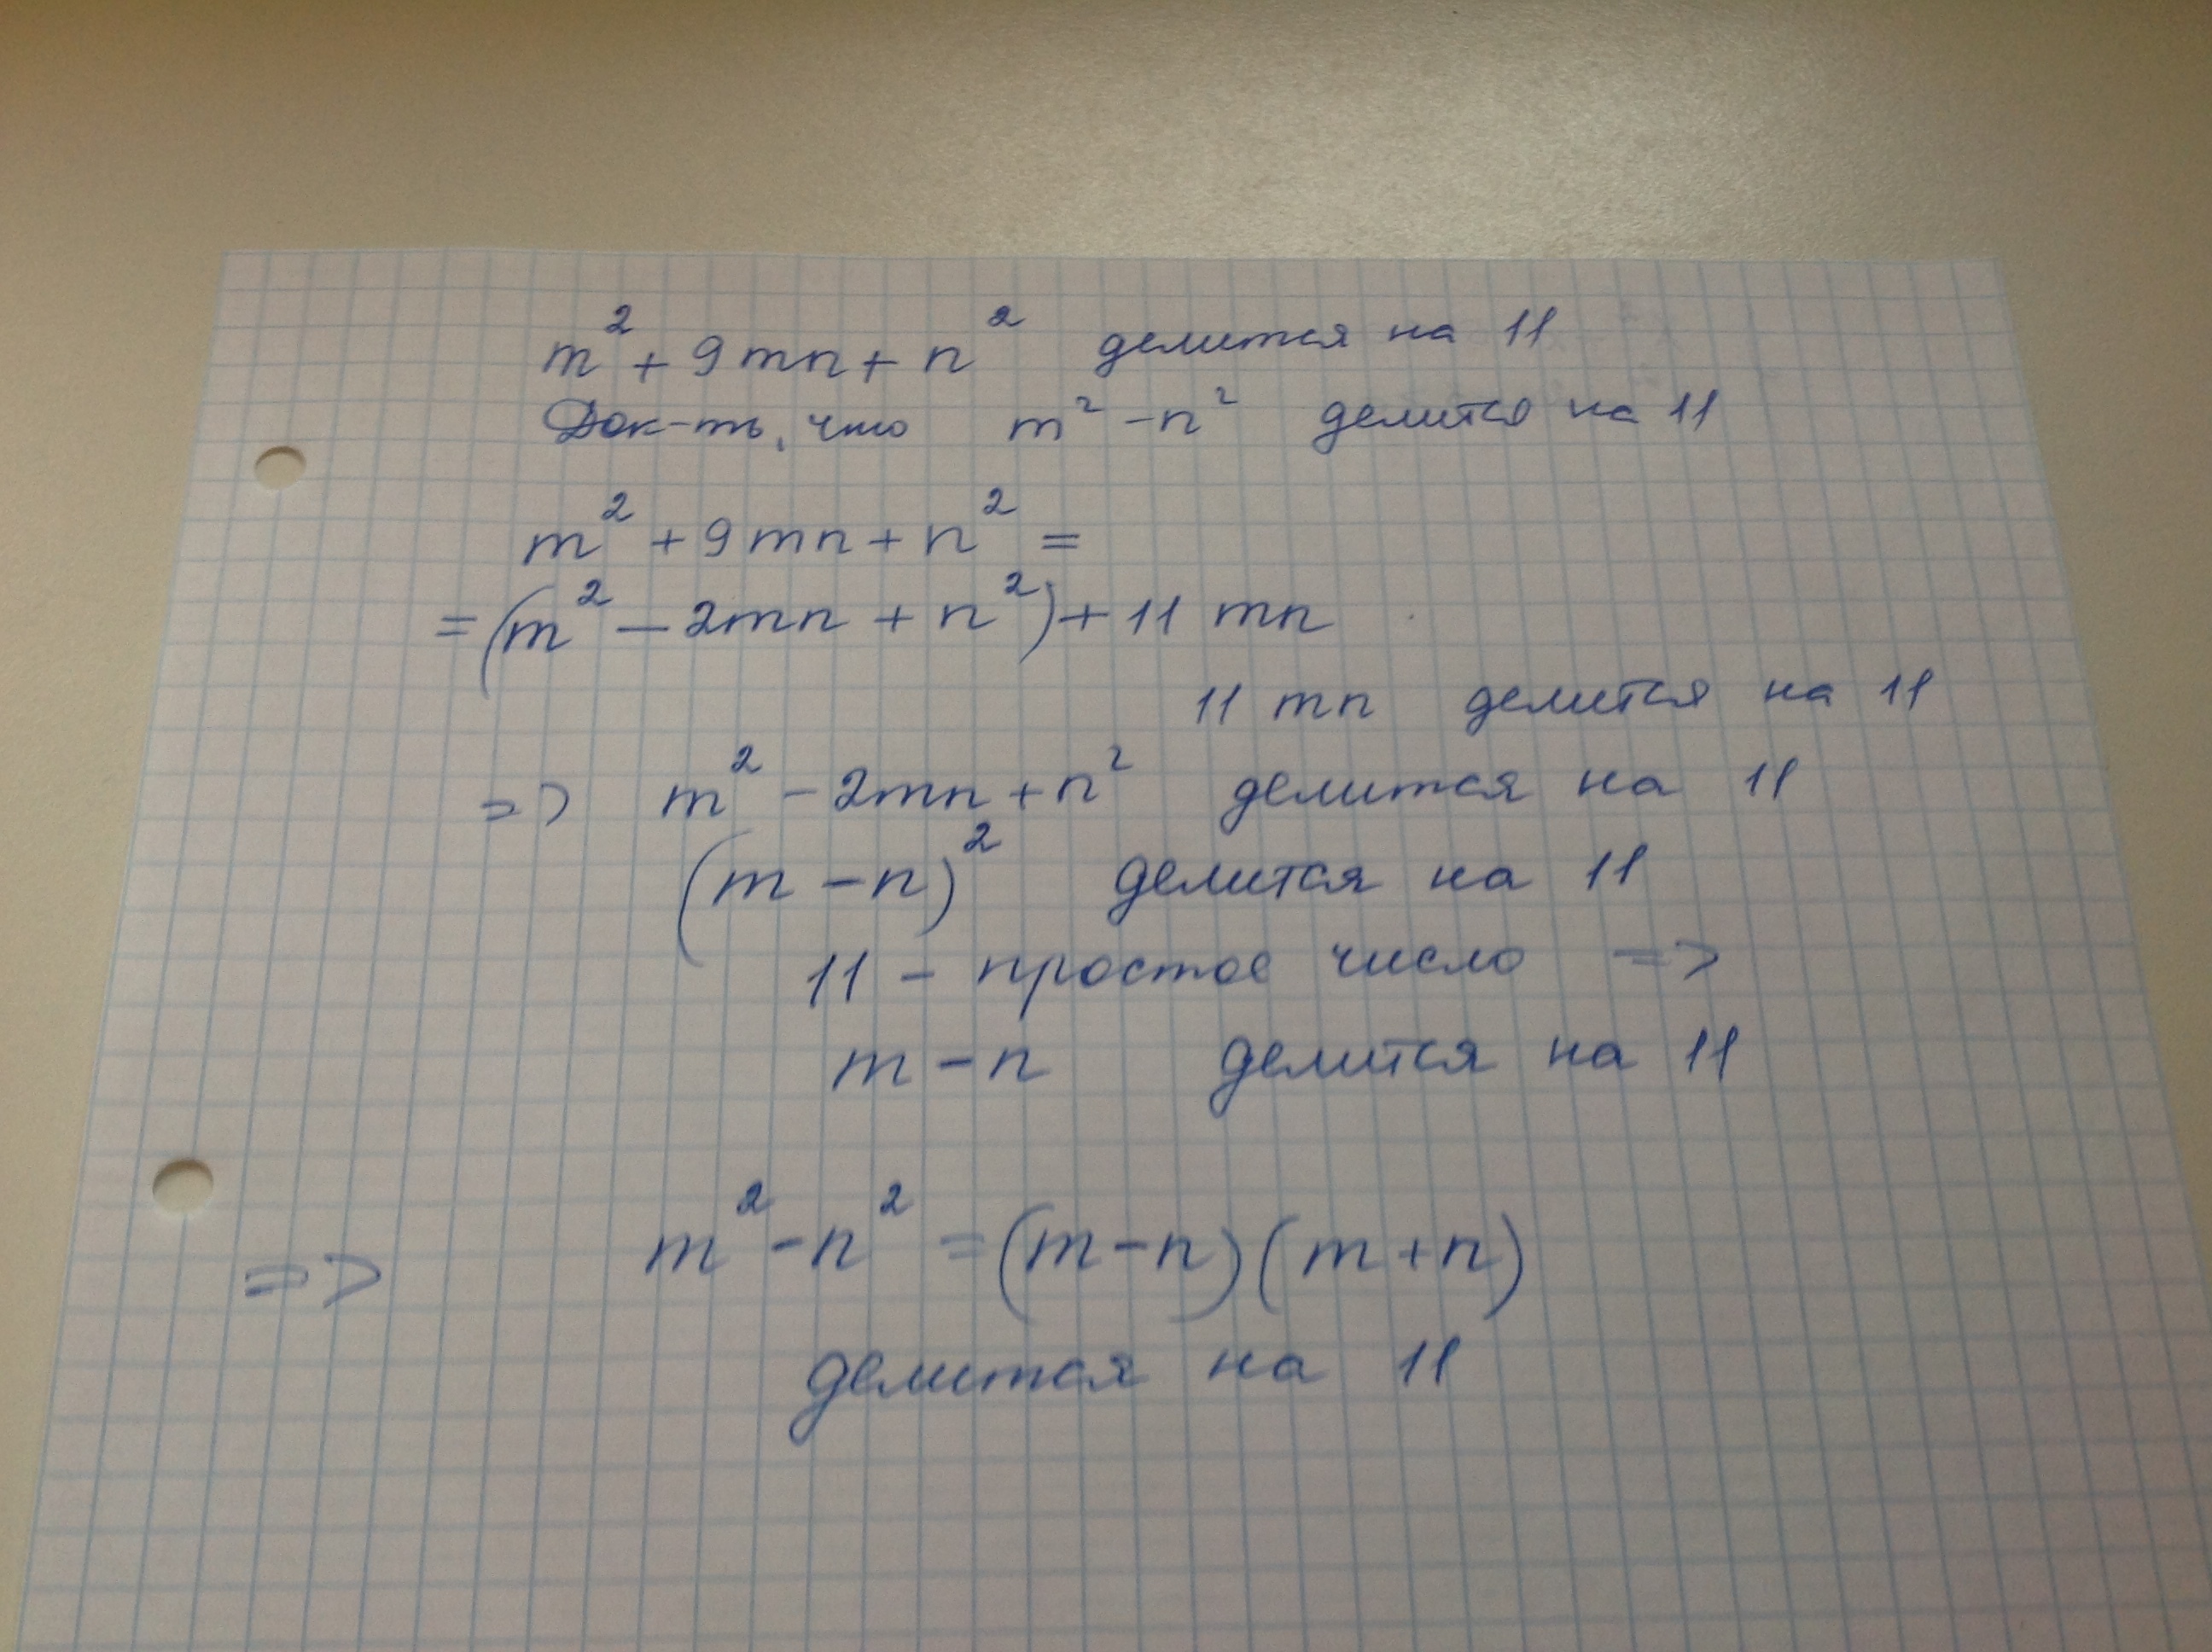 m² + 9mn + n² делится на 11
Док-ть, что m² - n² делится на 11
m² + 9mn + n² =
= (m² - 2mn + n²) + 11 mn
11 mn делится на 11
=> m² - 2mn + n² делится на 11
(m - n)² делится на 11
11 - простое число =>
m - n делится на 11
=> m² - n² = (m - n)(m + n)
делится на 11